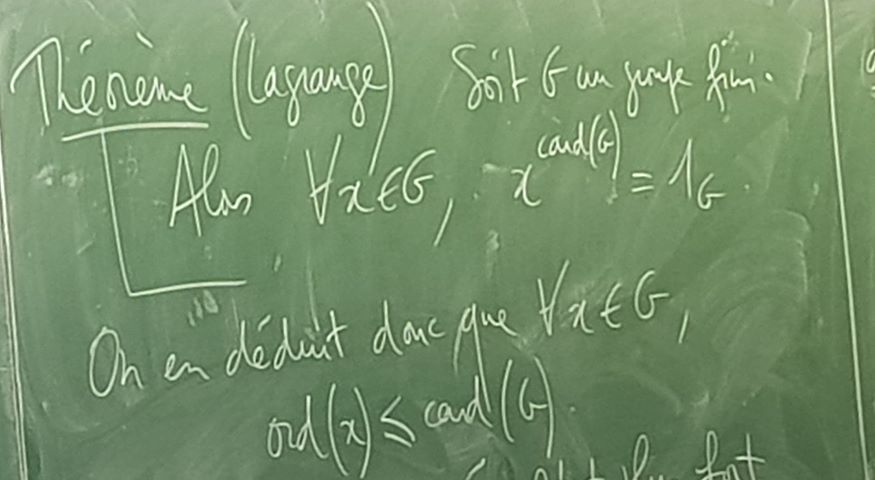 Théorème (Lagrange) Soit G un groupe fini.
Alors ∀x∈G, x^card(G) = 1_G.
On en déduit donc que ∀x∈G,
ord(x) ≤ card(G).
fort